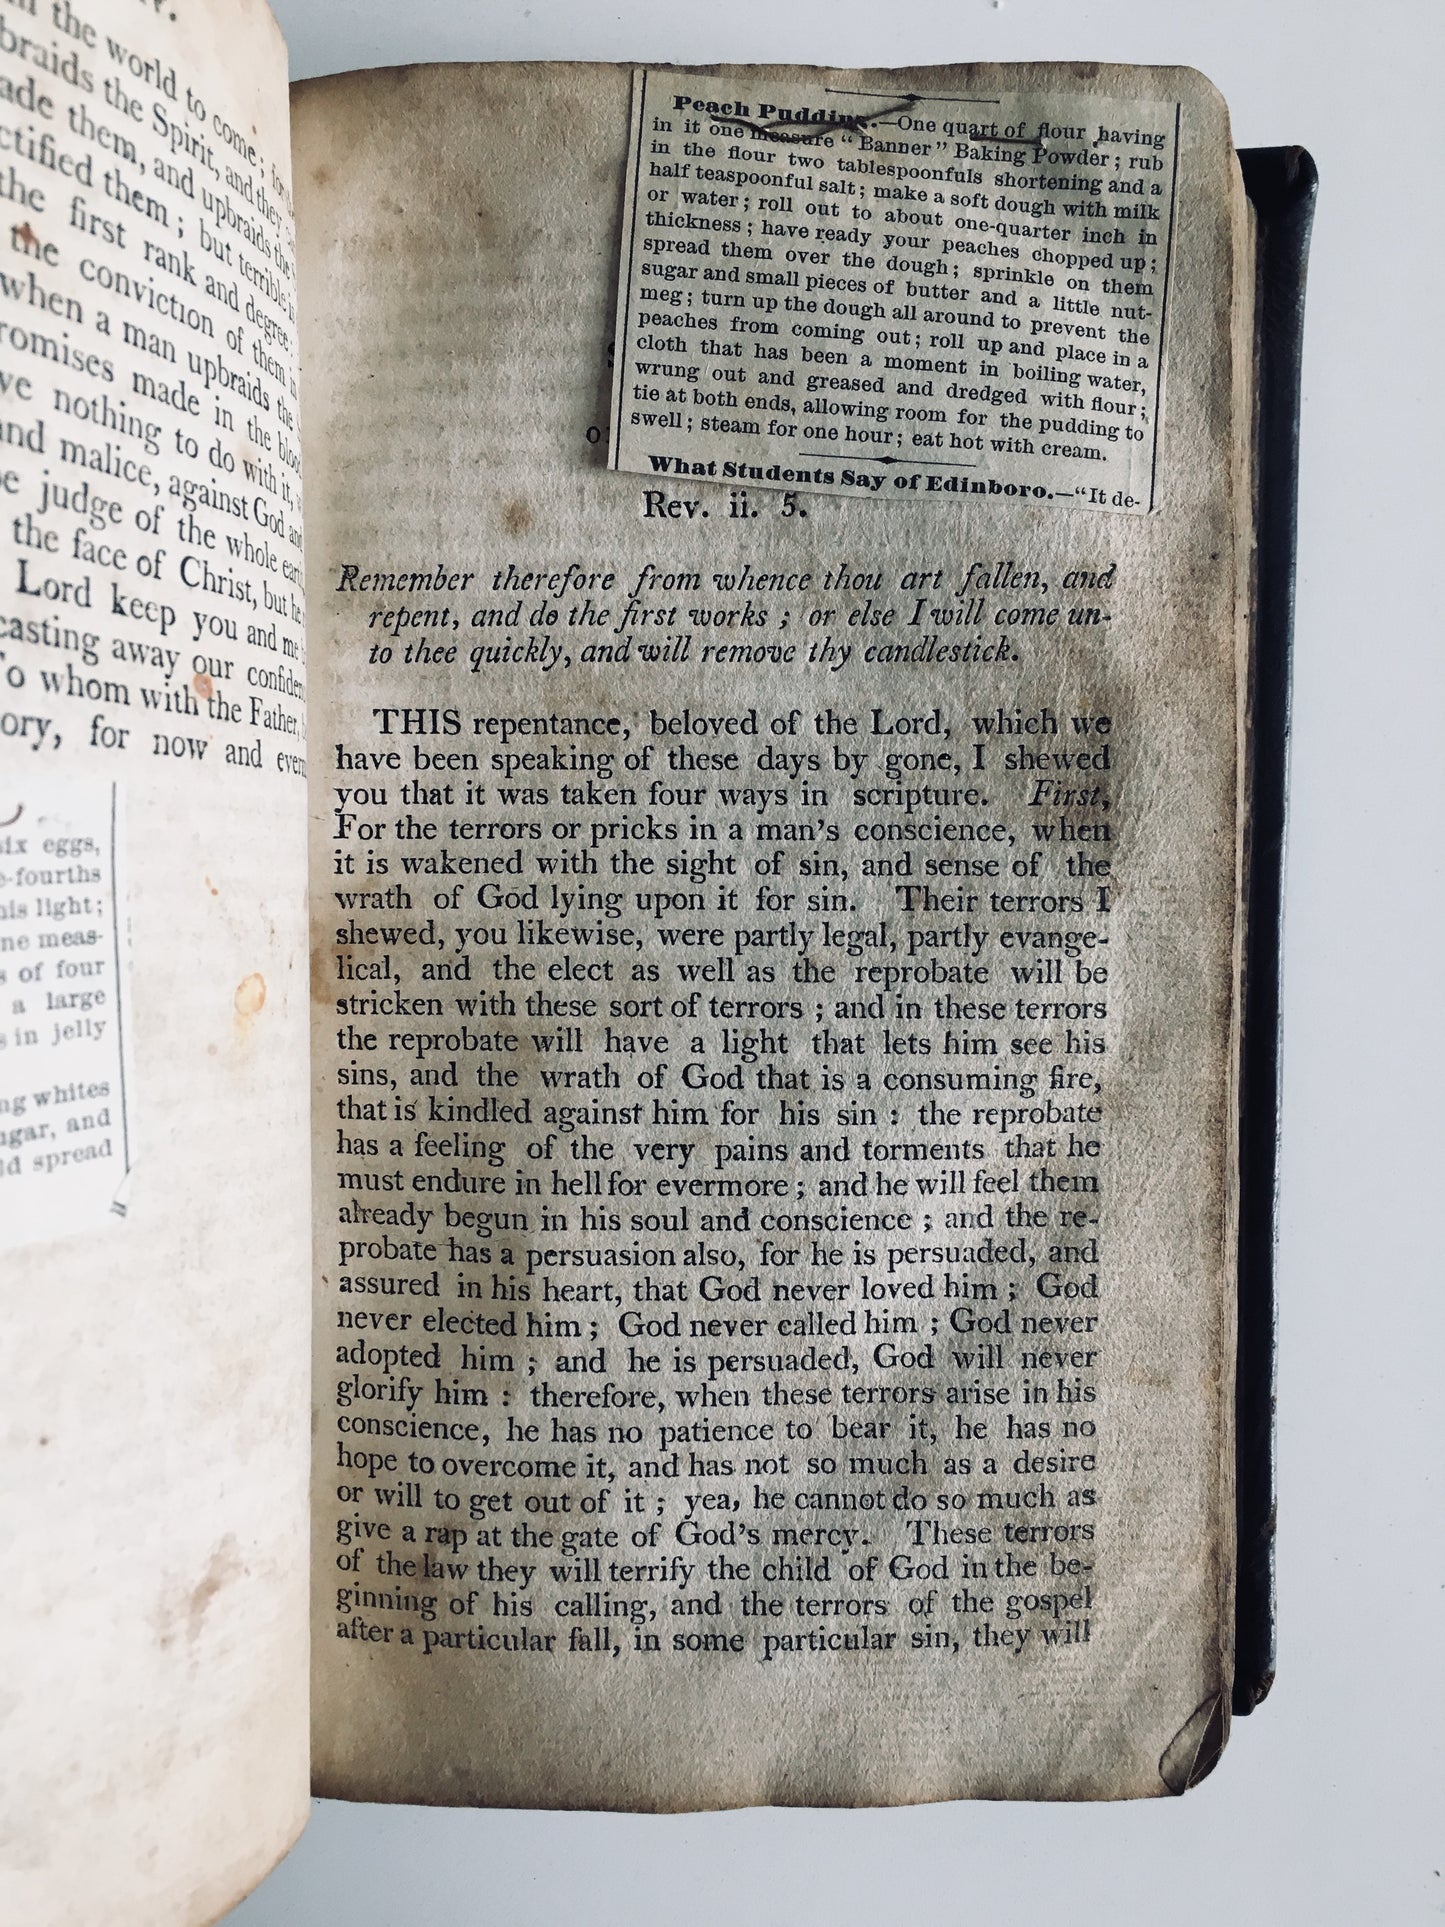 the world to come; for
braids the Spirit, and they
ade them, and upbraids the
ctified them; but terrible is
the first rank and degree:
the conviction of them in
when a man upbraids the
romises made in the blood
ve nothing to do with it,
and malice, against God and
be judge of the whole
the face of Christ, but he
Lord keep you and me
casting away our
To whom with the Father,
ory, for now and
six eggs,
e-fourths
his light;
ne meas-
s of four
a large
s in jelly
ng whites
ugar, and
ld spread
Peach Pudding.—One quart of flour having
in it one measure "Banner" Baking Powder; rub
in the flour two tablespoonfuls shortening and a
half teaspoonful salt; make a soft dough with milk
or water; roll out to about one-quarter inch in
thickness; have ready your peaches chopped up;
spread them over the dough; sprinkle on them
sugar and small pieces of butter and a little nut-
meg; turn up the dough all around to prevent the
peaches from coming out; roll up and place in a
cloth that has been a moment in boiling water,
wrung out and greased and dredged with flour;
tie at both ends, allowing room for the pudding to
swell; steam for one hour; eat hot with cream.
What Students Say of Edinboro.—"It de-
Rev. ii. 5.
Remember therefore from whence thou art fallen, and
repent, and do the first works; or else I will come un-
to thee quickly, and will remove thy candlestick.
THIS repentance, beloved of the Lord, which we
have been speaking of these days by gone, I shewed
you that it was taken four ways in scripture. First,
For the terrors or pricks in a man's conscience, when
it is wakened with the sight of sin, and sense of the
wrath of God lying upon it for sin. Their terrors I
shewed, you likewise, were partly legal, partly evange-
lical, and the elect as well as the reprobate will be
stricken with these sort of terrors; and in these terrors
the reprobate will have a light that lets him see his
sins, and the wrath of God that is a consuming fire,
that is kindled against him for his sin: the reprobate
has a feeling of the very pains and torments that he
must endure in hell for evermore; and he will feel them
already begun in his soul and conscience; and the re-
probate has a persuasion also, for he is persuaded, and
assured in his heart, that God never loved him; God
never elected him; God never called him; God never
adopted him; and he is persuaded, God will never
glorify him: therefore, when these terrors arise in his
conscience, he has no patience to bear it, he has no
hope to overcome it, and has not so much as a desire
or will to get out of it; yea, he cannot do so much as
give a rap at the gate of God's mercy. These terrors
of the law they will terrify the child of God in the be-
ginning of his calling, and the terrors of the gospel
after a particular fall, in some particular sin, they will